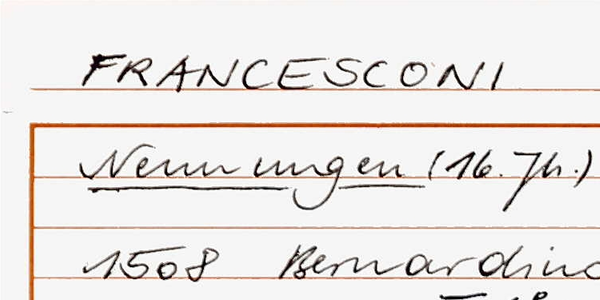 FRANCESCONI
Nennungen (16. Jh.)
1508 Bernardino